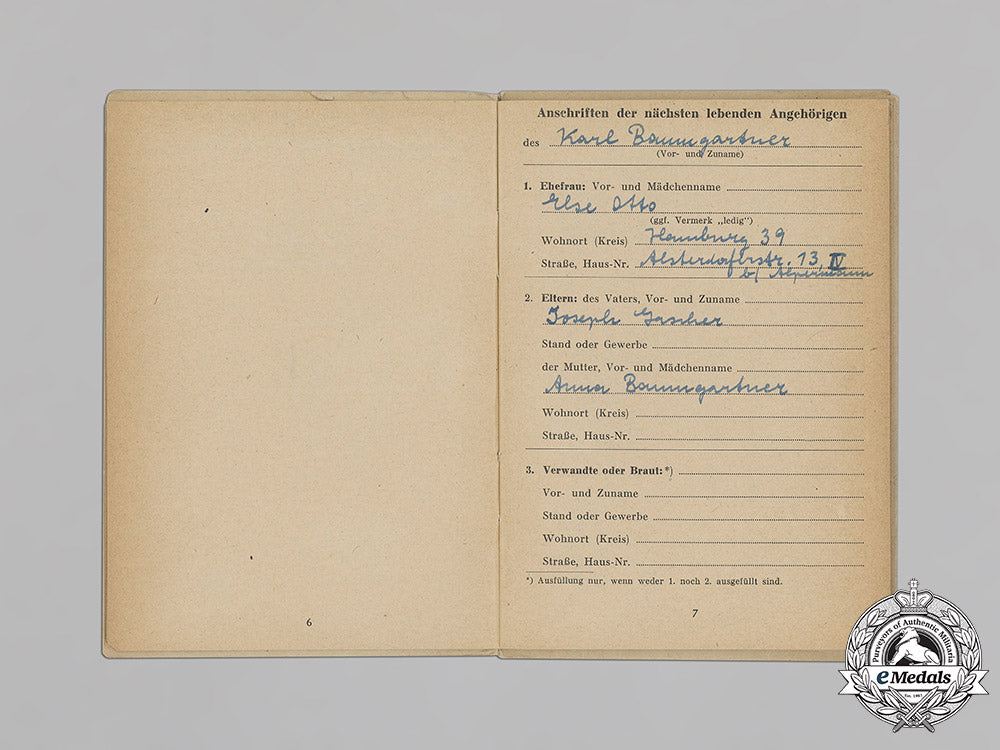 6
Anschriften der nächsten lebenden Angehörigen
des Karl Baumgartner
(Vor- und Zuname)
1. Ehefrau: Vor- und Mädchenname
Else Otto
(ggf. Vermerk „ledig")
Wohnort (Kreis) Hamburg 39
Straße, Haus-Nr. Alsterdorferstr. 13, IV
b/
2. Eltern: des Vaters, Vor- und Zuname
Joseph Gascher
Stand oder Gewerbe
der Mutter, Vor- und Mädchenname
Anna Baumgartner
Wohnort (Kreis)
Straße, Haus-Nr.
3. Verwandte oder Braut:*)
Vor- und Zuname
Stand oder Gewerbe
Wohnort (Kreis)
Straße, Haus-Nr.
*) Ausfüllung nur, wenn weder 1. noch 2. ausgefüllt sind.
7
Purveyors of Authentic Militaria
eMedals